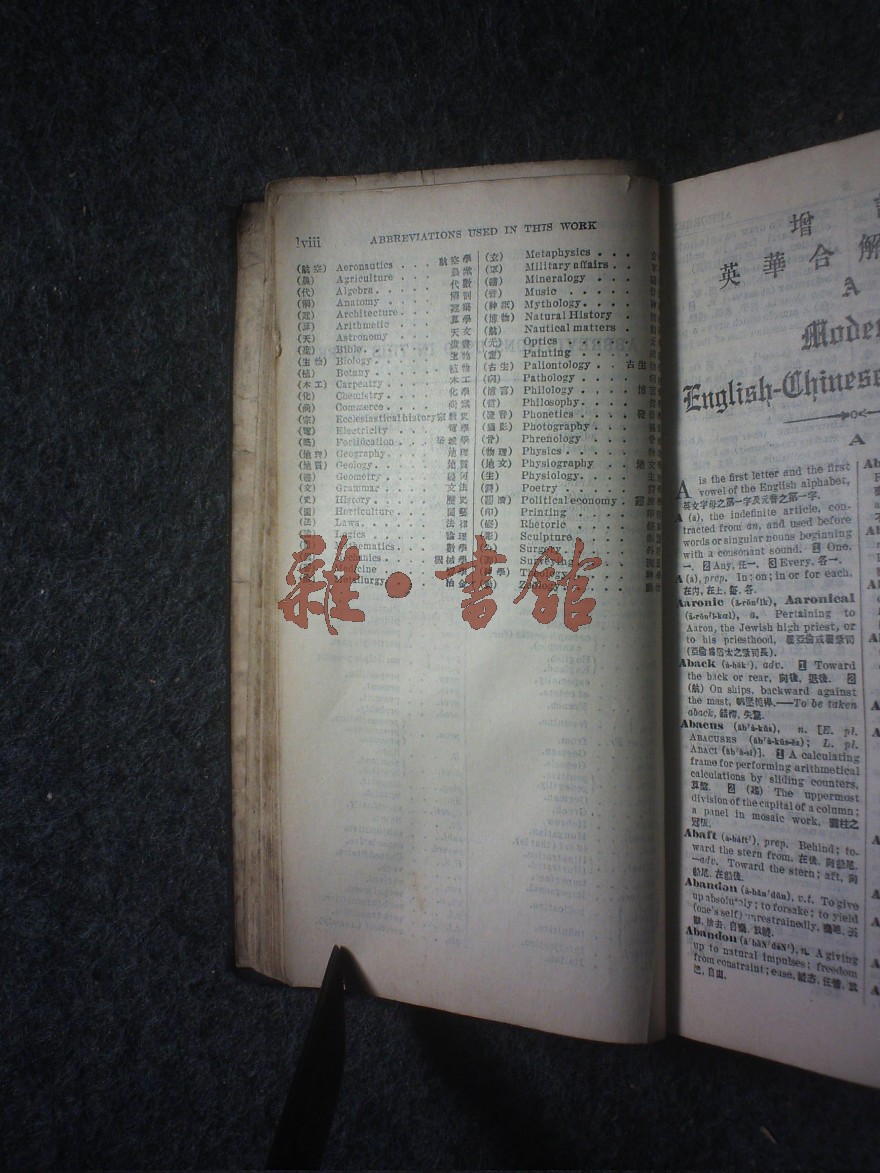 lviii ABBREVIATIONS USED IN THIS WORK
(航空) Aeronautics . . . 航空學
(農) Agriculture . . . 農業
(代) Algebra. . . . 代數
(解) Anatomy . . . . 解剖
(建) Architecture. . . 建築
(算) Arithmetic . . . 算學
(天) Astronomy . . . 天文
Bible. . . .
(生物) Biology. . . . 生物
(植) Botany . . . . 植物
(木工) Carpeatry . . . 木工
(化) Chemistry. . . . 化學
(商) Commerce. . . . 商業
(宗) Ecclesiastical history 宗教史
(電) Electricity . . . 電學
Fortification. . .
(地理) Geography. . . . 地理
(地質) Geology. . . . 地質
Geometry . . . 幾何
(文) Grammar . . . . 文法
(史) History. . . . 歷史
(園) Horticulture . . . 園藝
(法) Laws. . . . 法律
Logics . . . 論理
Mathematics. . . 數學
Mechanics . . 機械學
Medicine
Metallurgy. . . 冶金
(玄) Metaphysics . . .
(軍) Military affairs . . .
(礦) Mineralogy . . . .
(音) Music . . . .
(神話) Mythology. . . .
(博物) Natural History . .
(航) Nautical matters .
(光) Optics . . . .
(畫) Painting . . . .
(古生) Paliontology . . 古生
(病) Pathology . . . .
(博言) Philology . . . 博
(哲) Philosophy. . . .
(發音) Phonetics . . . 發
(攝影) Photography . . .
(骨) Phrenology . . .
(物理) Physics . . . .
(地文) Physiography . . 地文
(生) Physiology. . . . 生
(詩) Poetry . . . .
Political economy .
(印) Printing . . . . 印
(修) Rhetoric . . . .
Sculpture . . .
Surgery
Surveying
Theology
Zoology
雜·書館
增
英華合解
A
Moder
English-Chinese
A
A is the first letter and the first
vowel of the English alphabet,
英文字母之第一字及元音之第一字.
A (a), the indefinite article, con-
tracted from an, and used before
words or singular nouns beginning
with a consonant sound. 1 One,
一. 2 Any, 任一. 3 Every, 各一.
A (ȧ), prep. In; on; in or for each,
在內, 在上, 每, 各.
Aaronic (â-rŏn'ĭk), Aaronical
(â-rŏn'ĭ-kal), a. Pertaining to
Aaron, the Jewish high priest, or
to his priesthood,
Aback (ȧ-băk'), adv. 1 Toward
the back or rear, 向後, 退後. 2
(航) On ships, backward against
the mast, —To be taken
aback, 錯愕, 失驚.
Abacus (ăb'ȧ-kŭs), n. [E. pl.
ABACUSES (ăb'ȧ-kŭs-ĕz); L. pl.
ABACI (ăb'ȧ-sī)]. 1 A calculating
frame for performing arithmetical
calculations by sliding counters,
算盤. 2 (建) The uppermost
division of the capital of a column;
a panel in mosaic work, 圓柱之
冠板.
Abaft (ȧ-bȧft'), prep. Behind; to-
ward the stern from, 在後, 向船尾.
—adv. Toward the stern; aft, 向
船尾, 在船後.
Abandon (ȧ-băn'dŭn), v.t. To give
up absolutely; to forsake; to yield
(one's self) unrestrainedly,
Abandon n. A giving
up to natural impulses; freedom
from constraint; ease,
自由.